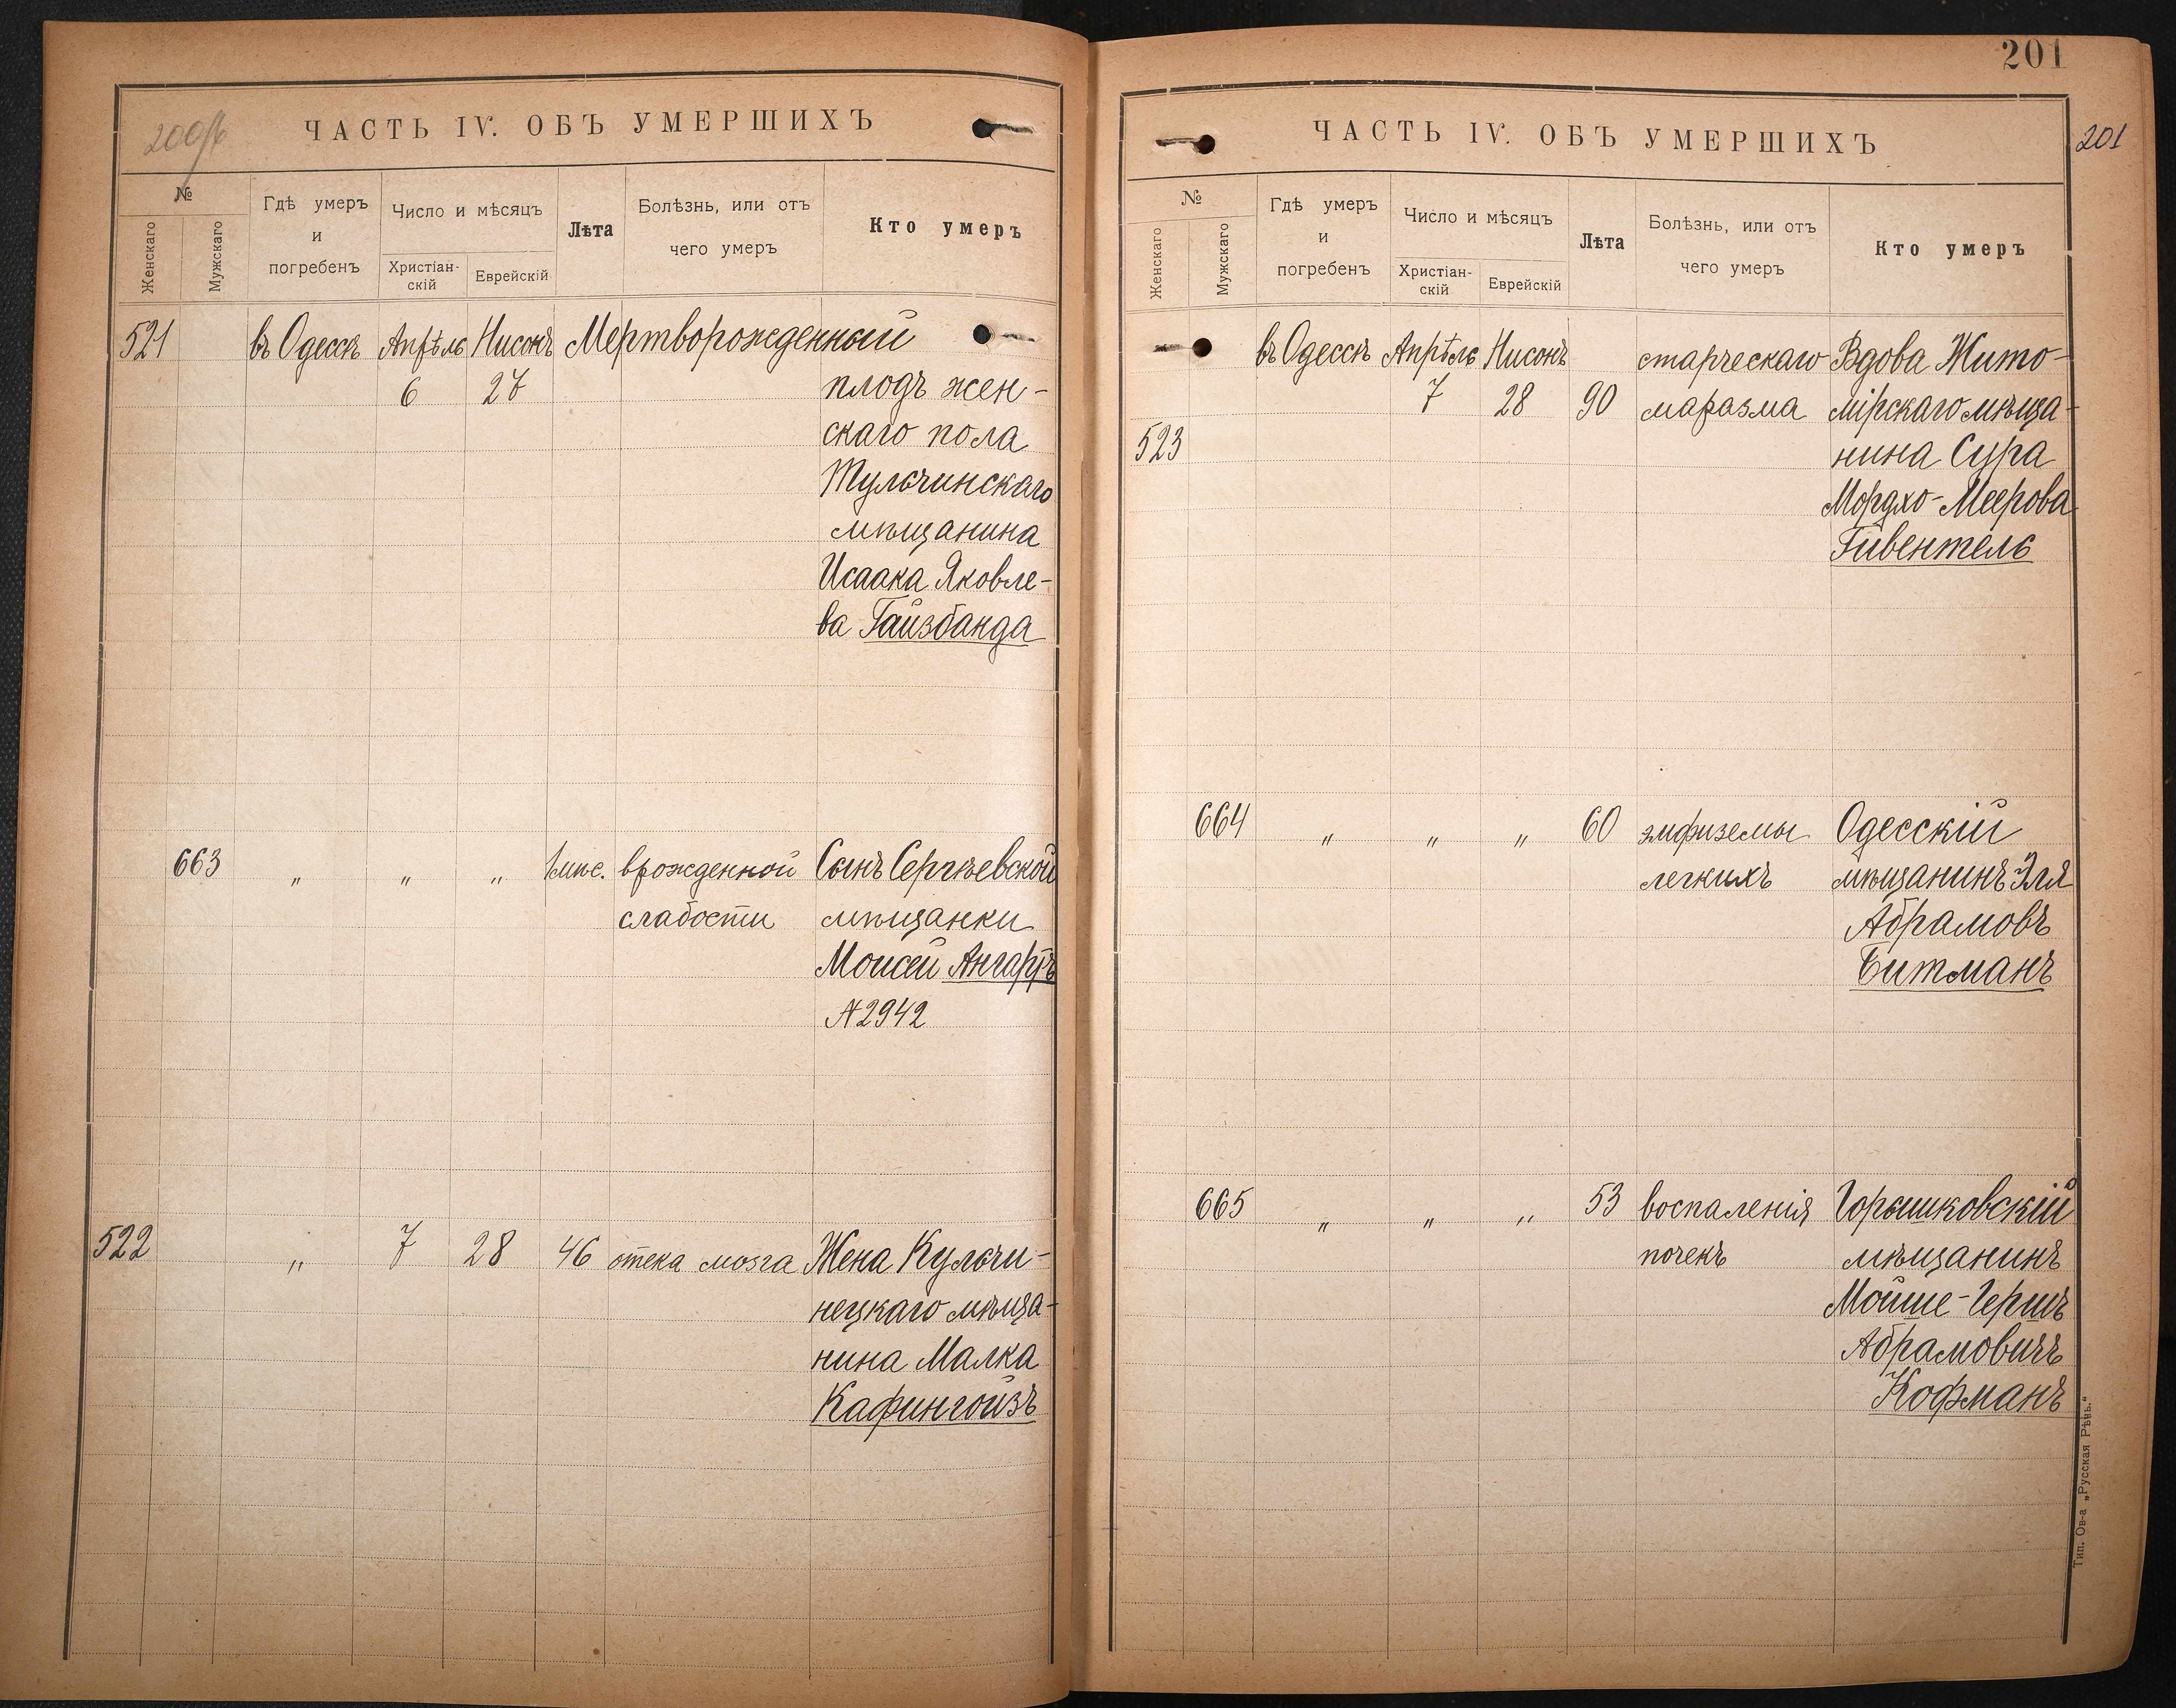 200об
ЧАСТЬ IV. ОБЪ УМЕРШИХЪ
№
Женскаго
Мужскаго
Гдѣ умеръ
и
погребенъ
Число и мѣсяцъ
Христіан-
скій
Еврейскій
Лѣта
Болѣзнь, или отъ
чего умеръ
Кто умеръ
521 въ Одессѣ Апрѣль Нисонъ Мертворожденный
6 27 плодъ жен-
скаго пола
Тульчинскаго
мѣщанина
Исаака Яковле-
ва Гайзбанда
663 " " " 1 мѣс. врожденной Сынъ Сергѣевской
слабости мѣщанки
Моисей Ангартъ
№2942
522 " 7 28 46 отека мозга Жена Кульчи-
нецкаго мѣща-
нина Малка
Кафингойзъ
201
ЧАСТЬ IV. ОБЪ УМЕРШИХЪ
201
№
Женскаго
Мужскаго
Гдѣ умеръ
и
погребенъ
Число и мѣсяцъ
Христіан-
скій
Еврейскій
Лѣта
Болѣзнь, или отъ
чего умеръ
Кто умеръ
въ Одессѣ Апрѣль Нисонъ старческаго Вдова Жито-
7 28 90 маразма мірскаго мѣща-
523 нина Сура
Мордхо-Меерова
Гивентель
664 " " " 60 эмфиземы Одесскій
легкихъ мѣщанинъ Эля
Абрамовъ
Битманъ
665 " " " 53 воспаленія Горышковскій
почекъ мѣщанинъ
Мойше-Гершъ
Абрамовичъ
Кофманъ
Тип. Ов-а „Русская Рѣчь."